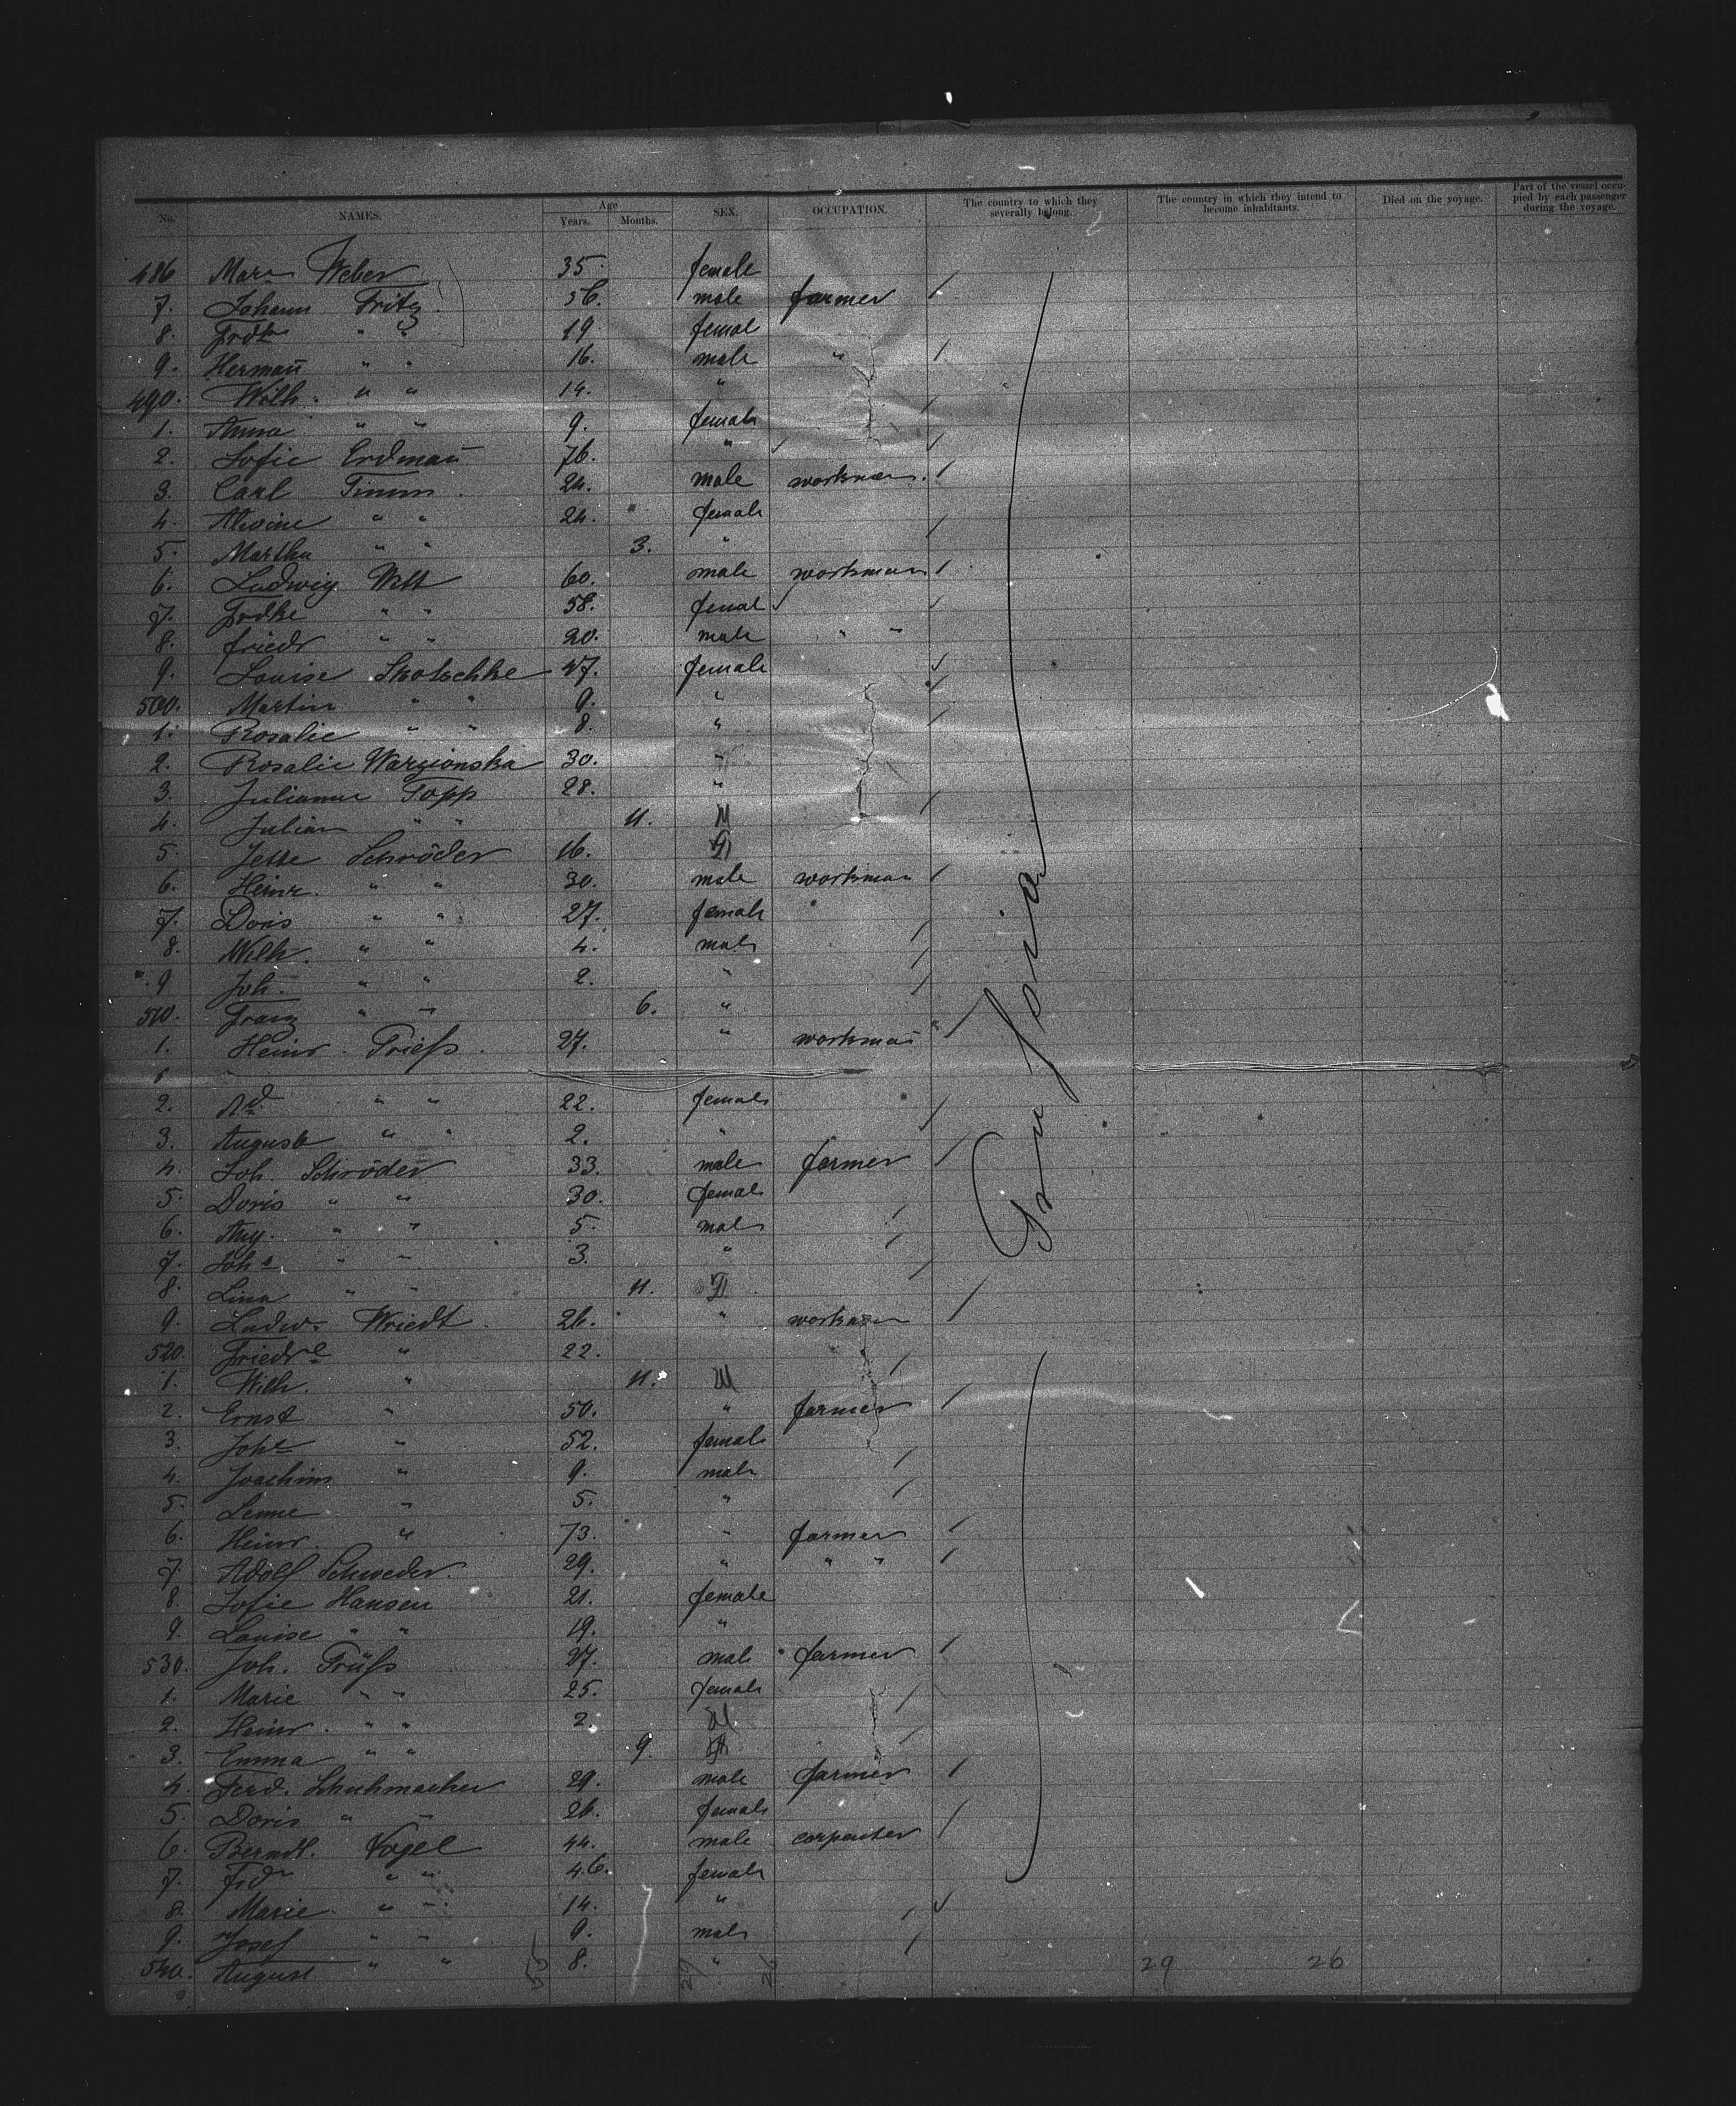 No. NAMES. Age Years. Months. SEX. OCCUPATION. The country to which they severally belong. The country in which they intend to become inhabitants. Died on the voyage. Part of the vessel occupied by each passenger during the voyage.
486 Mar. Weber 35. female
7. Johann Fritz 56. male farmer
8. Frdke " " 19. femal
9. Hermañ " " 16. male "
490. Wilh. " " 14. "
1. Anna " " 9. female
2. Sofie Erdmañ 76. "
3. Carl Timm 24. male workman.
4. Alwine " " 24. female
5. Martha " " 3. "
6. Ludwig Witt 60. male workman
7. Frdke " " 58. femal
8. Friedr " " 20. male " "
9. Louise 27. female
500. Martin " " 9. "
1. Rosalie " " 8. "
2. Rosalie Warzionska 30. "
3. Julianne Topp 28. "
4. Julian " " 11. M
5. Jette Schröder 16. F
6. Heinr. " " 30. male workman
7. Doris " " 27. female
8. Wilh. " " 4. male
9 Joh. " " 2. "
510. Franz " " 6. "
1. Heinr. Triefs 27. " workmañ
2. " " 22. female
3. Auguste " " 2. "
4. Joh. Schröder 33. male farmer
5. Doris " " 30. female
6. " " 5. male
7. Joh " " 3. "
8. Lina " " 11. F
9. Ludw. Wriedt 26. " workman
520. Friedre " 22.
1. Wilh. " 11. M
2. Ernst " 50. " farmer
3. Johe " 52. female
4. Joachim " 9. male
5. " 5. "
6. Heinr. " 73. " farmer
7. Adolf Schweder. 29. " " "
8. Sofie Hansen 21. female
9. Louise " " 19. "
530. Joh. Trüfs 27. male farmer
1. Marie " " 25. female
2. Heinr. " " 2. M
3. Emma " " 9. F
4. Ferd. Schuhmacher 29. male farmer
5. Doris " " 26. female
6. Berndt. Vogel 44. male carpenter
7. " " 46. female
8. Marie " " 14. "
9. Josef " " 9. male
540. August " " 8. "
55 29 26 29 26